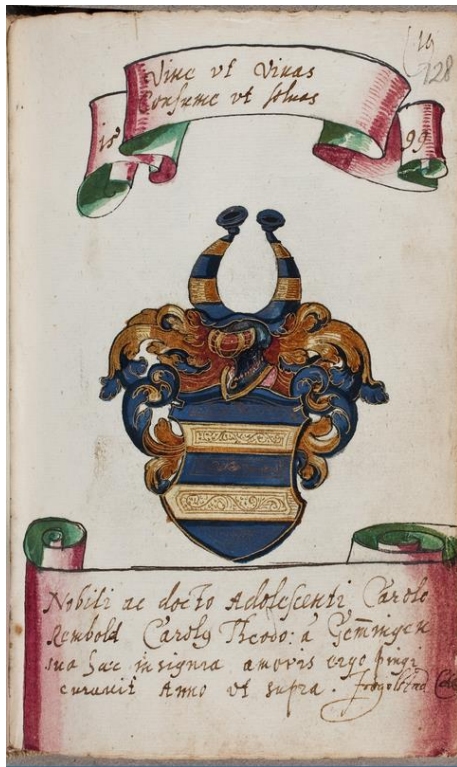 19
128
Viue vt Viuas
Consume vt soluas
15 99
Nobili ac docto Adolescenti Carolo
Rembold Carolg Theodo: à Gem̄ingen
sua haec insignia amoris ergo pingi
curauit Anno vt supra.